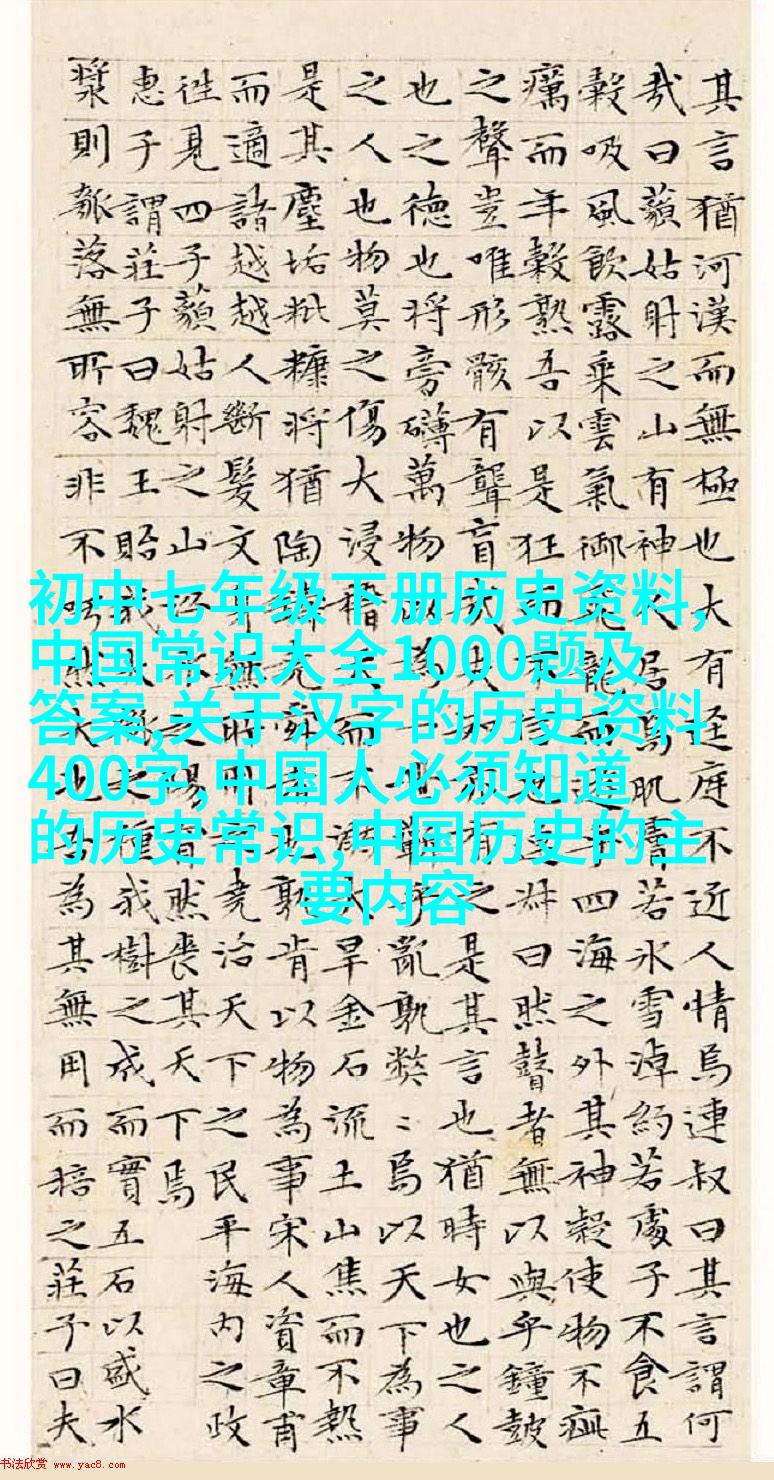 其言猶河漢而無極也大有迳庭不近人情焉連叔曰其言謂何
哉曰藐姑射之山有神人居焉肌膚若氷雪淖約若處子不食五
穀吸風飲露乘雲氣御飛龍而遊乎四海之外其神凝使物不疵
癘而年穀熟吾以是狂而不信也連叔曰然瞽者無以與乎鐘鼓
之聲豈唯形骸有聾盲哉夫有之是其言也猶時女也之人
也之德也將旁礴萬物以為一世蘄乎亂孰弊〻焉以天下為事
之人也物莫之傷大浸稽天而不溺大旱金石流土山焦而不熱
是其塵垢粃糠將猶陶鑄堯舜者也孰肯以物為事宋人資章甫
而適諸越越人斷髮文身無所用之堯治天下之民平海內之政
往見四子藐姑射之山之陽窅然喪其天下焉
惠子謂莊子曰魏王貽我大瓠之種我樹之成而實五石以盛水
漿則瓠落無所容非不呺然大也吾為其無用而掊之莊子曰夫
初中七年级下册历史资料,
中国常识大全1000题及
答案,关于汉字的历史资料
400字,中国人必须知道
的历史常识,中国历史的主
要内容
书法欣赏 www.yac8.com